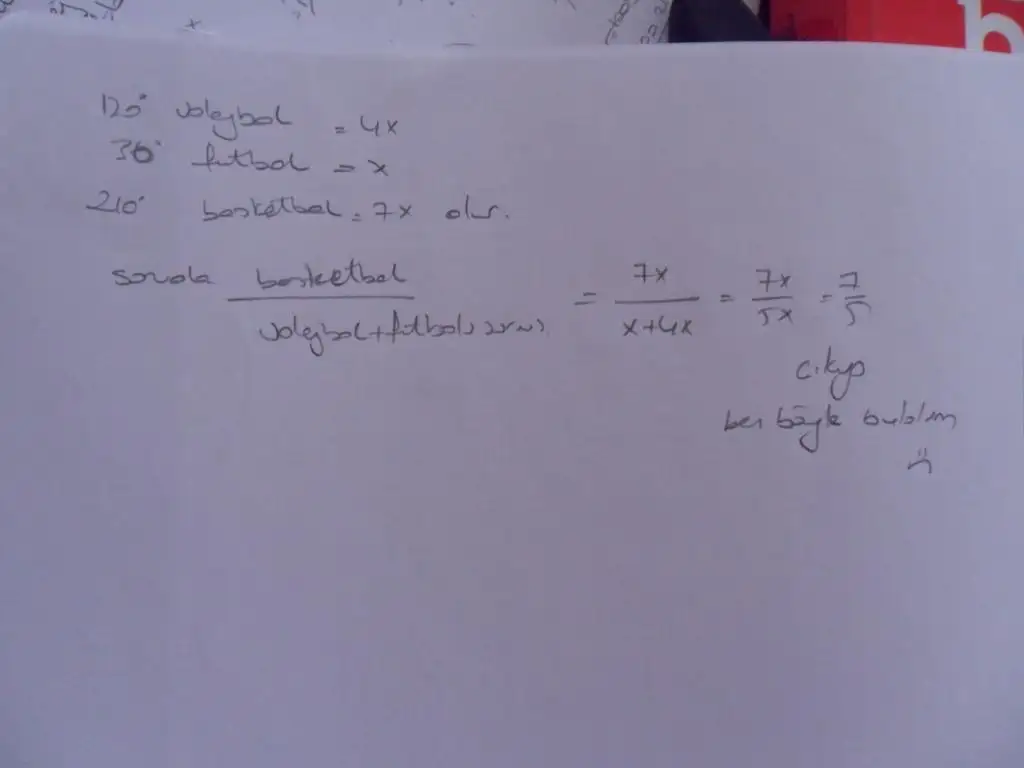 120° voleybol = 4x
30° futbol = x
210° basketbol = 7x olur.
soruda basketbol / voleybol+futbolu = 7x / x+4x = 7x / 5x = 7 / 5
çıkıyo
ben böyle buldum